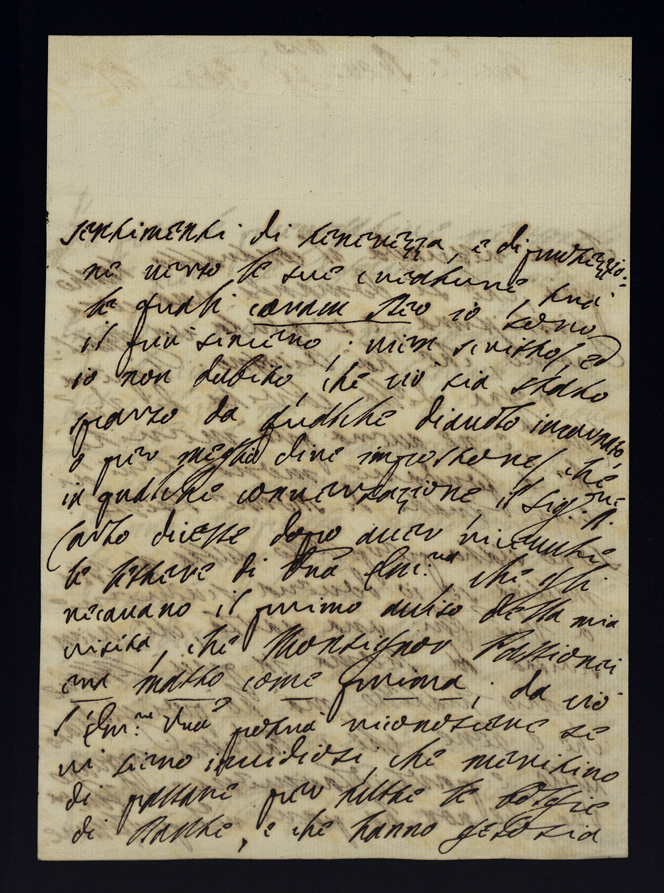 sentimenti di tenerezza, e di protezzio=
ne verso le sue creature, tra
le quali coram Deo io sono
il più sincero: vien scritto, ed
io non dubito, che ciò sia stato
sparso da qualche diavolo incarnato,
o per meglio dire impostore, che
in qualche conversazione il Sig.r D.
Carlo dicesse dopo aver ricevute
le lettere di Vra Em.za, che gli
recavano il primo aviso della mia
visita, che Monsignor Passionei
era matto come prima; da ciò
l'Em.za Vra potrà riconoscere se
vi sieno invidiosi, che meritino
di passare per tutte le bolgie
di Dante, e che hanno gelosia